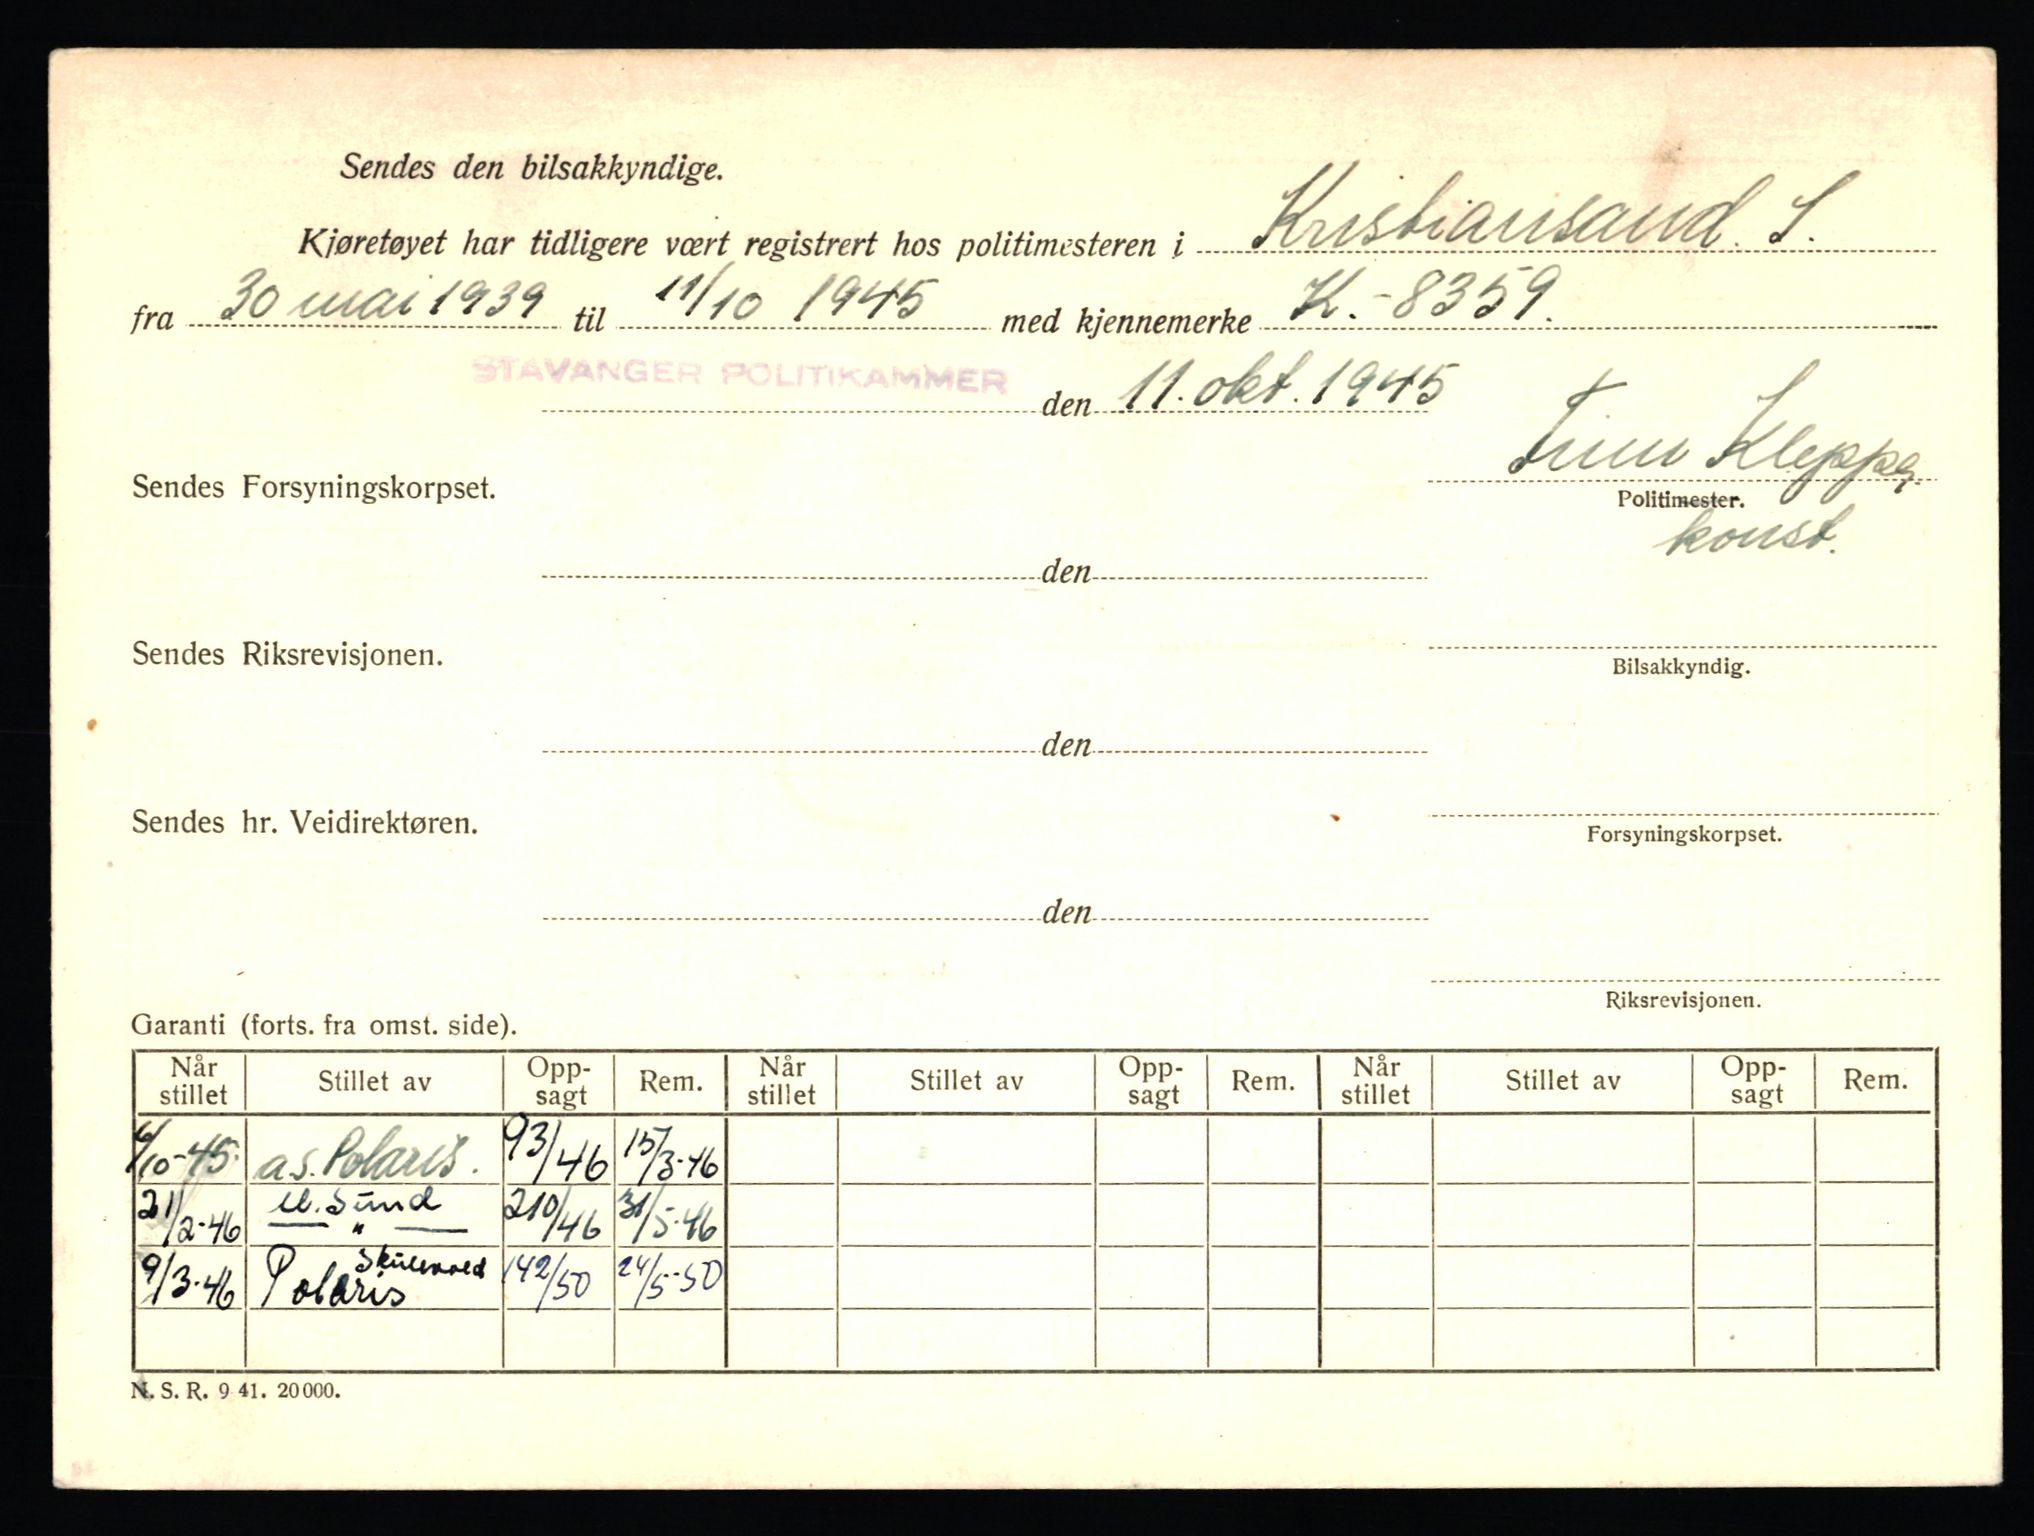 Sendes den bilsakkyndige.
Kjøretøyet har tidligere vært registrert hos politimesteren i Kristiansand. S.
fra 30 mai 1939 til 11/10 1945 med kjennemerke K.-8359.
STAVANGER POLITIKAMMER
den 11. okt. 1945
Finn Kleppe
Sendes Forsyningskorpset.
Politimester.
konst.
den
Sendes Riksrevisjonen.
Bilsakkyndig.
den
Sendes hr. Veidirektøren.
Forsyningskorpset.
den
Riksrevisjonen.
Garanti (forts. fra omst. side).
Når stillet Stillet av Opp-sagt Rem. Når stillet Stillet av Opp-sagt Rem. Når stillet Stillet av Opp-sagt Rem.
6/10-45 a.s. Polaris. 93/46 15/3-46
21/2-46 Sund " 210/46 31/5-46
9/3-46 Polaris 142/50 24/5-50
N. S. R. 9 41. 20000.